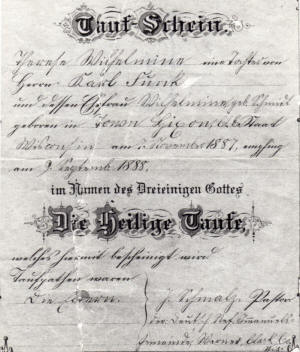 Tauf-Schein.
Therese Wilhelmine eine Tochter von
Herrn Karl Funk
und dessen Ehefrau Wilhelmine geb. Schmidt
geboren in Town Hixon, Staat
Wisconsin am November 1887, empfing
am 9. September 1888.
im Namen des Dreieinigen Gottes
Die Heilige Taufe,
welches hiermit bescheinigt wird
Taufpathen waren
Die Eltern. J. Schmalz Pastor
der Deutsch Ref. Immanuels
gemeinde, Clark Co.
Wis.